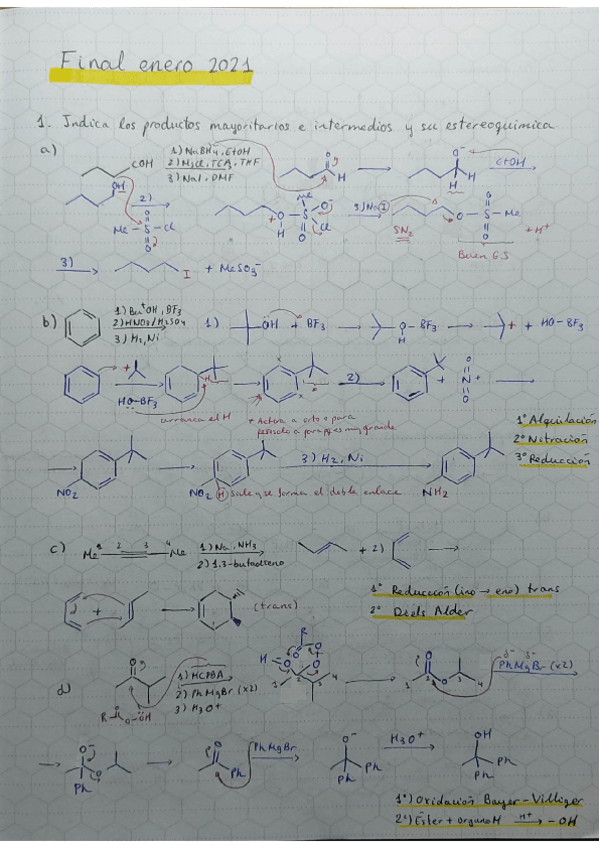 Final enero 2021
1. Indica los productos mayoritarios e intermedios y su estereoquímica
a) COH 1) NaBH4, EtOH
2) MsCl, TEA, THF
3) NaI, DMF
O H O- H H EtOH
OH 2)
Me-S-Cl O O
Me O O- S Cl O H 3) NaI
SN2 O-S-Me O O + H+
Buen G.S
3) I + MeSO3-
b) 1) ButOH, BF3
2) HNO3/H2SO4
3) H2, Ni
1) OH + BF3 O-BF3 H + + HO-BF3
+ HO-BF3 H 2) + O N+ O
arranca el H
+ Activa a orto o para
1º Alquilación
2º Nitración
3º Reducción
NO2 NO2 H 3) H2, Ni NH2
sale y se forma el doble enlace
c) Me 1 2 3 4 Me 1) Na, NH3
2) 1,3-butadieno
+ 2)
1º Reducción (ino → eno) trans
2º Diels Alder
+ (trans)
d) O 1) MCPBA
2) PhMgBr (x2)
3) H3O+
R O-OH
H O R O O 1 2 3 4
O O 1 2 3 4 δ- δ+ PhMgBr (x2)
O- O Ph O Ph PhMgBr O- Ph Ph H3O+ OH Ph Ph
1º) Oxidación Bayer-Villiger
2º) Ester + organoM H+ → -OH